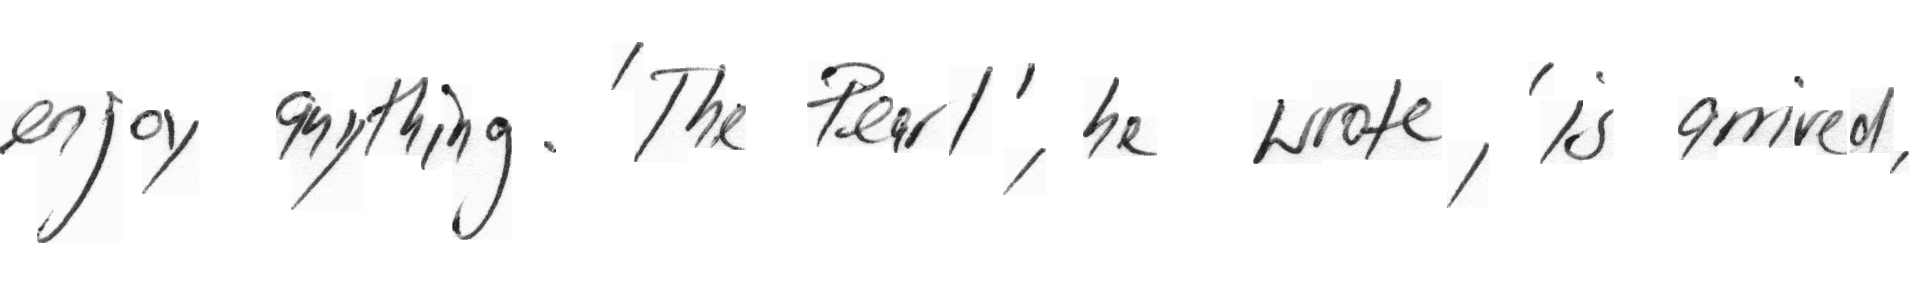 enjoy anything. 'The Pearl', he wrote, 'is arrived,